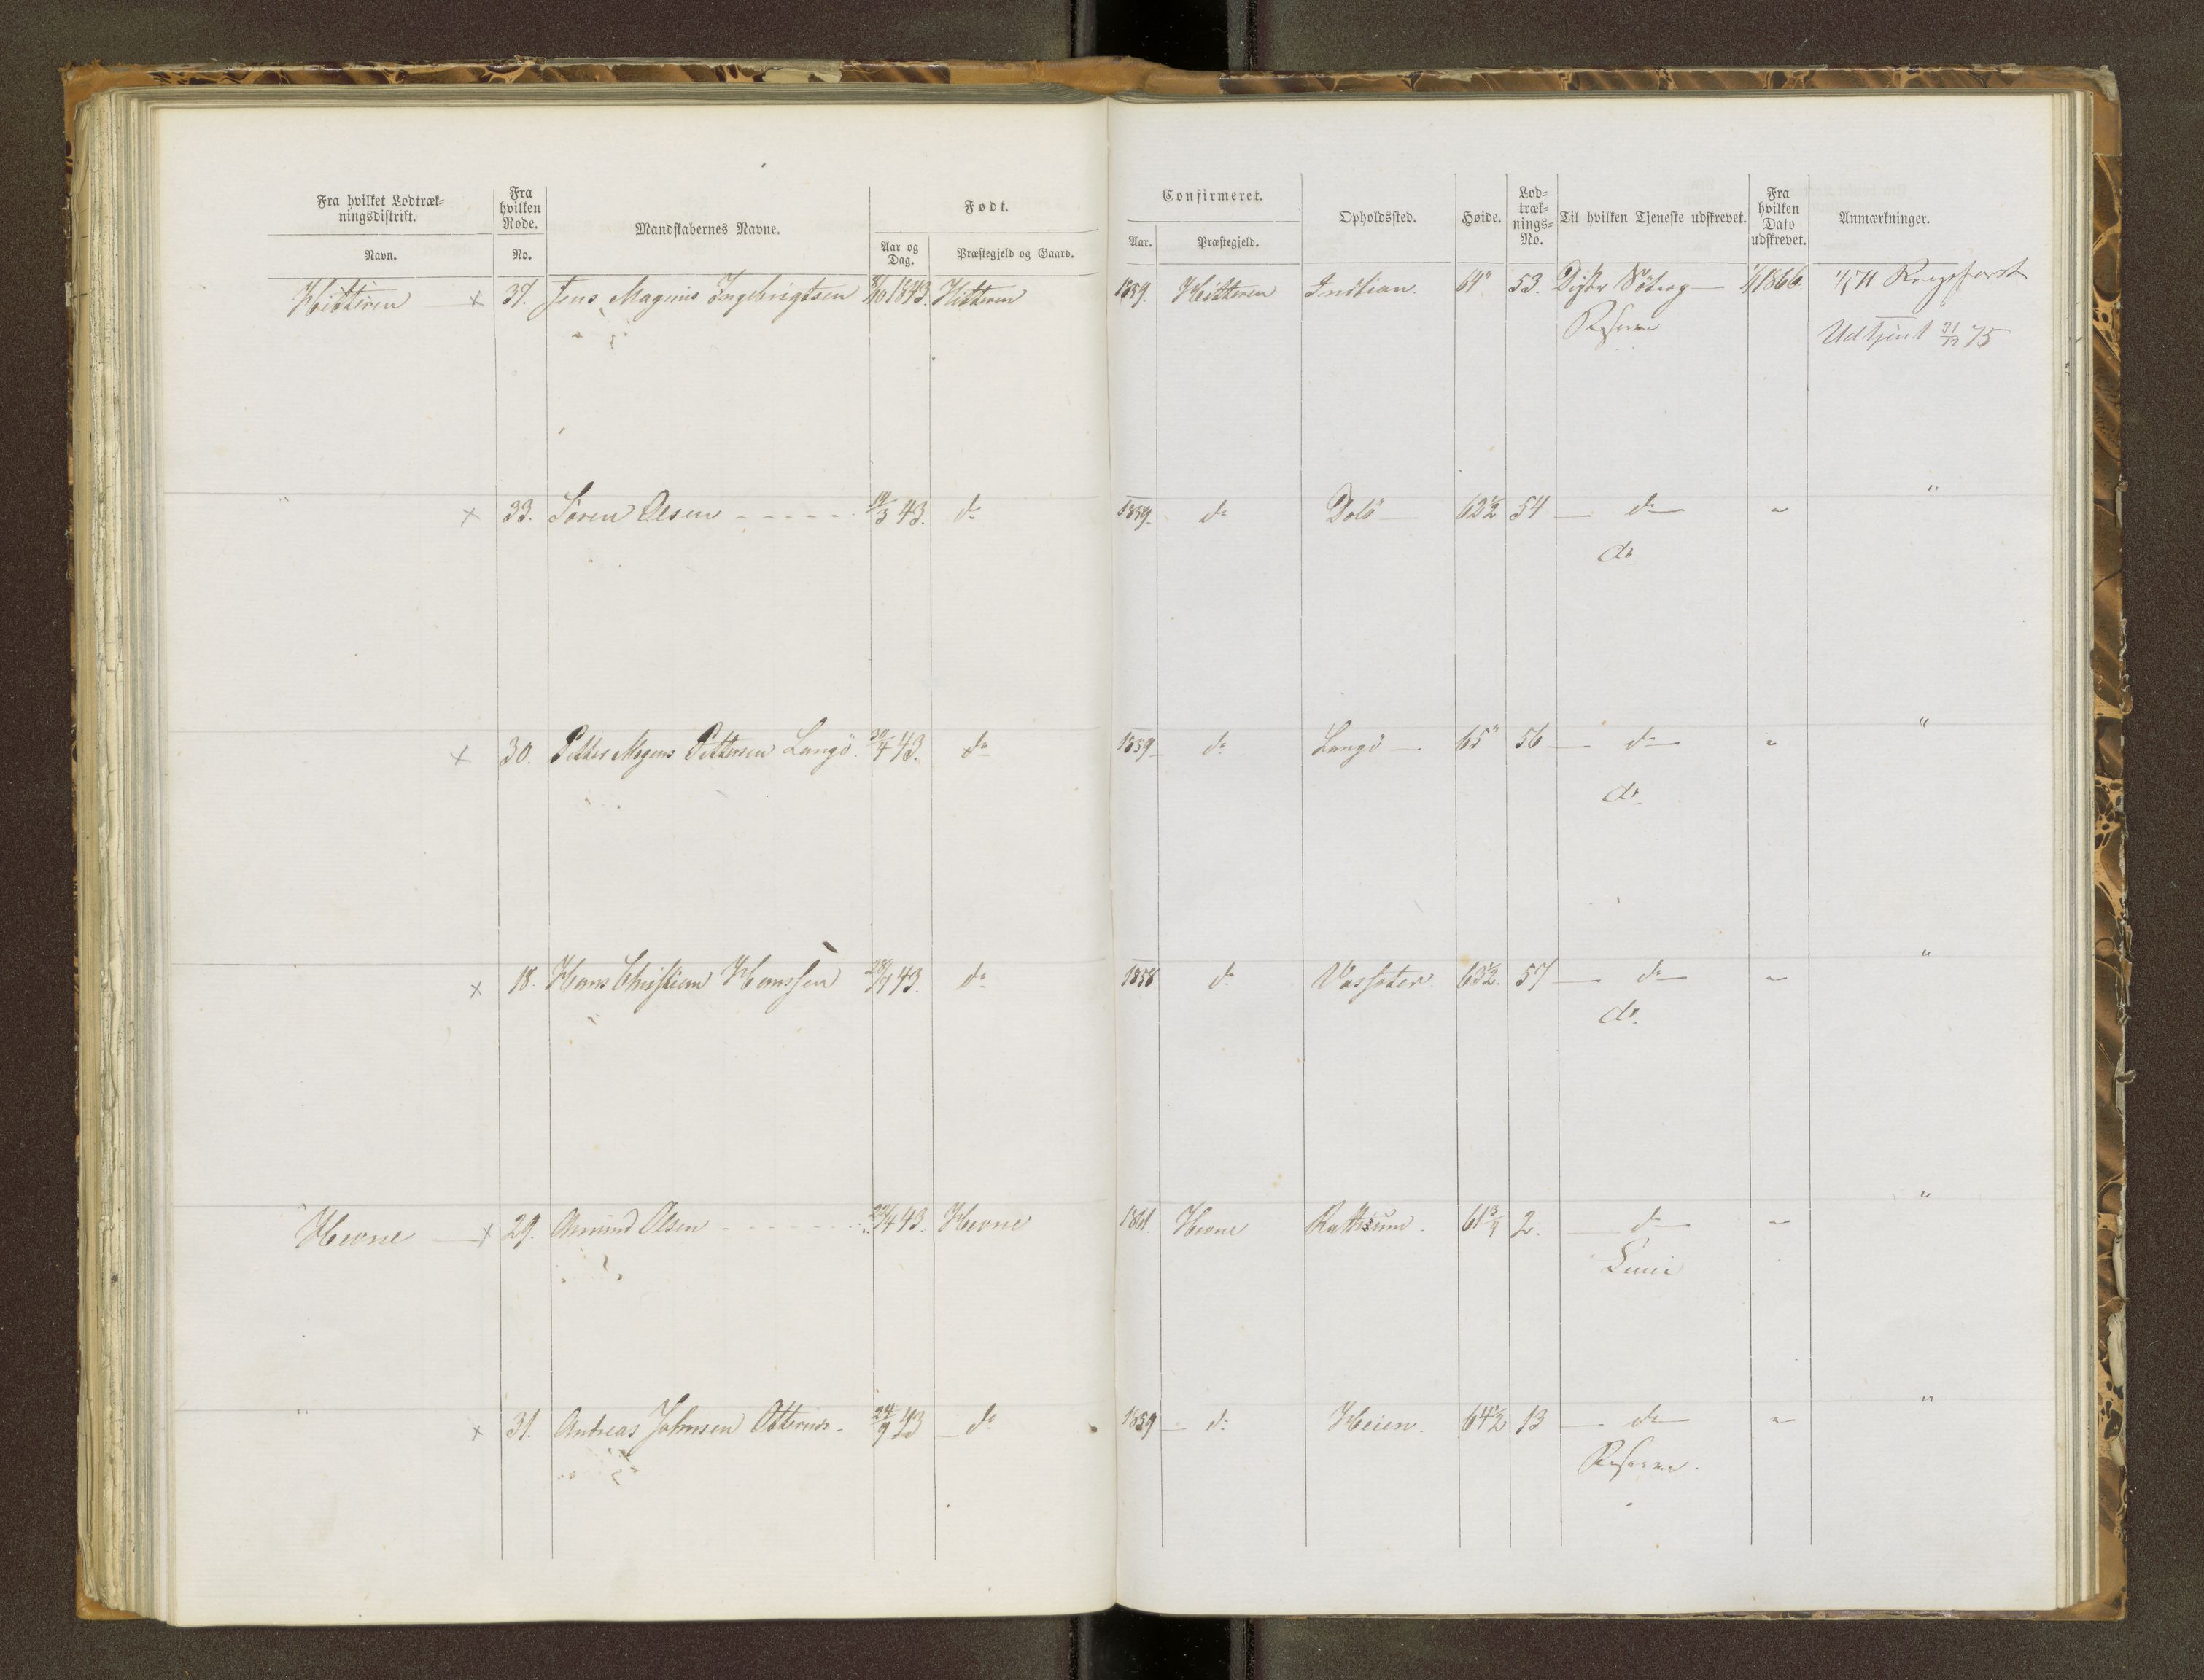 Fra hvilket Lodtræk-
ningsdistrikt.
Navn.
Fra
hvilken
Rode.
No.
Mandskabernes Navne.
Født.
Aar og
Dag.
Præstegjeld og Gaard.
Confirmeret.
Aar.
Præstegjeld.
Opholdssted.
Høide.
Lod-
træk-
nings-
No.
Til hvilken Tjeneste udskrevet.
Fra
hvilken
Dato
udskrevet.
Anmærkninger.
Hitteren x 37. Jens Magnus Ingebrigtsen 1843. Hitteren 1859. Hitteren Indtian. 64" 53. 1/1 1866. 1/1 71
Reserve Udtjent 31/12 75
" x 33. Søren Olsen 19/3 43. do 1859. do Dolö 63½ 54 do " "
do
x 30. Petter Mogens Pettersen Langö. 30/4 43. do 1859 do Langö 65" 56 do " "
do
x 18. Hans Christian Hanssen 28/9 43. do 1858 do Vasseter. 63½. 57 do " "
do
" Hevne x 29. Amund Olsen 43. Hevne 1861. Hevne 61¾ 2. do " "
Linie
" x 31. Andreas Johnsen 24/9 43 do 1859 do Heien. 64½ 13 do " "
Reserve.